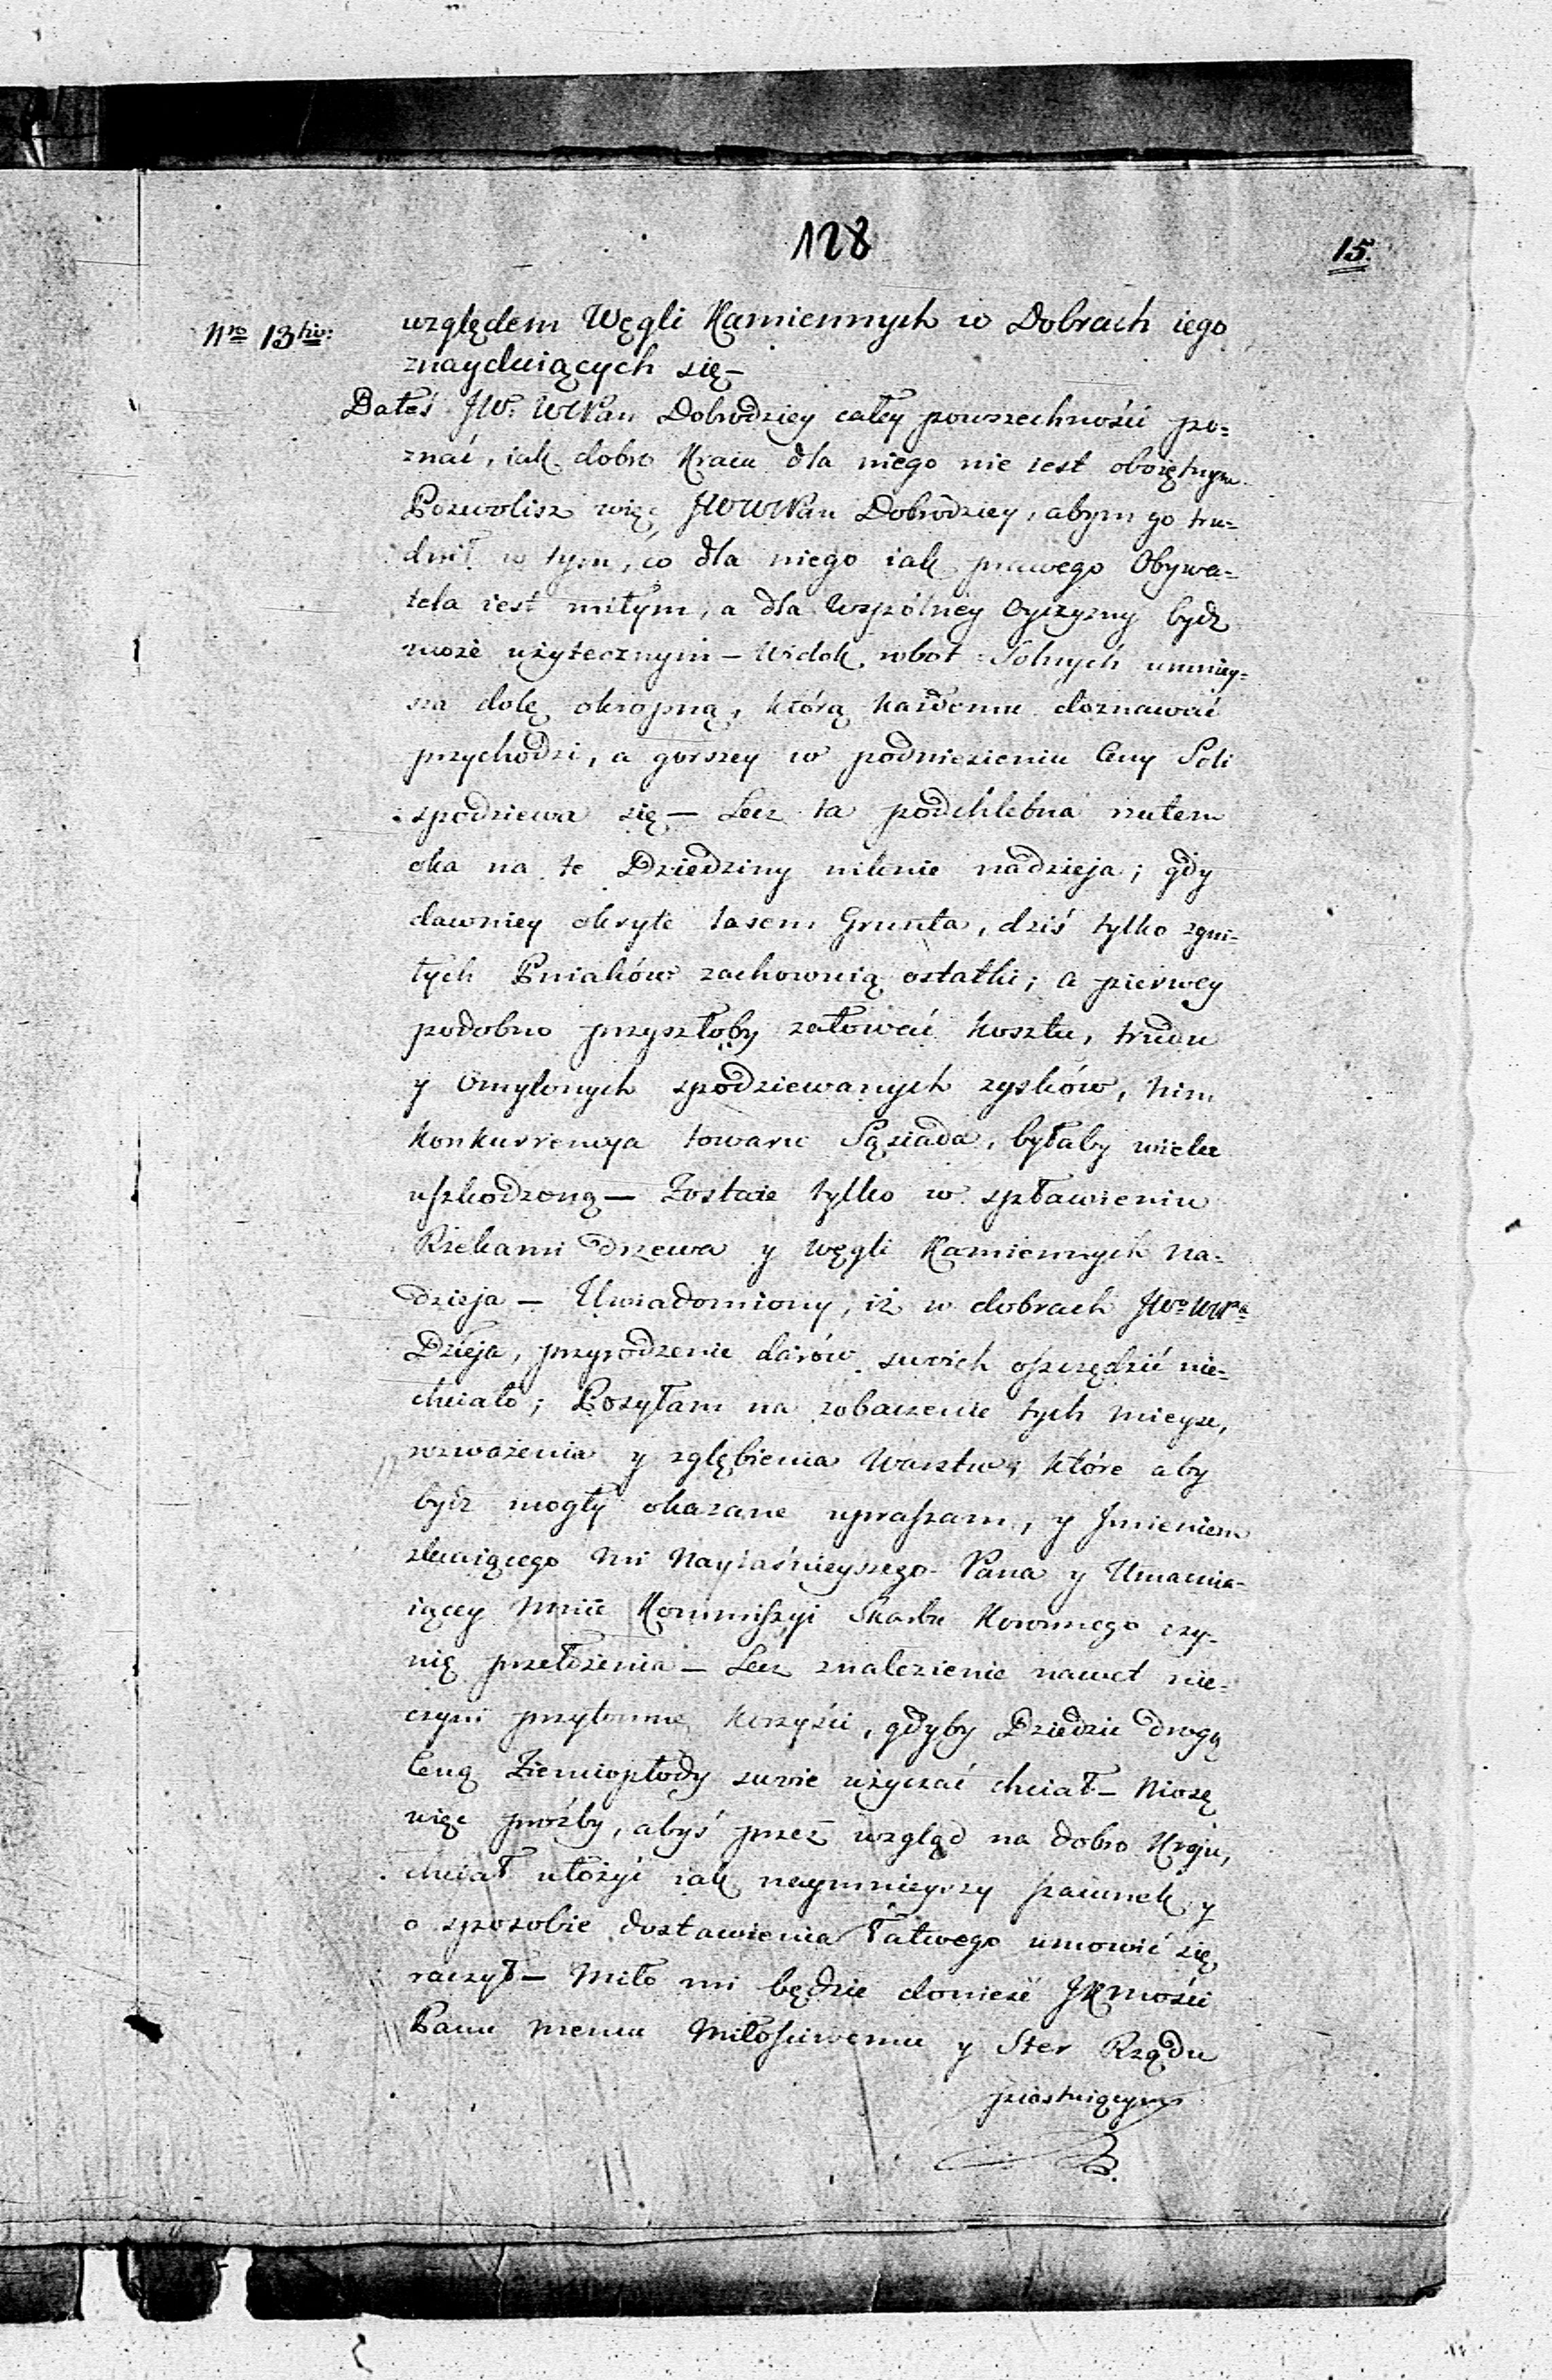 128
15.
Nro 13tio:
względem Węgli Kamiennych w Dobrach iego
znayduiących się —
Dałeś JW. WMPan Dobrodziey całey powszechności po=
znać, iak dobro Kraiu dla niego nie iest oboiętnym
Pozwolisz więc JWWMPan Dobrodziey, abym go tru=
dnił w tym, co dla niego iak prawego Obywa=
tela iest miłym, a dla Wspólney Oyczyzny bydz
może użytecznym — Widok robot Solnych umniey=
sza dolę okropną, którą każdemu doznawać
przychodzi, a gorszey w podniesieniu Ceny Soli
spodziewa się — Lecz ta podchlebna rzutem
oka na te Dziedziny niknie nadzieja; gdy
dawniey okryte lasem Grunta, dziś tylko zgni=
łych Pniaków zachowuią ostatki; a pierwey
podobno przyszłoby żałować kosztu, trudu
y Omylonych spodziewanych zysków, nim
Konkurrencya towaru Sąsiada, byłaby wielce
uszkodzoną — Zostaie tylko w spławieniu
Rzekami drzewa y Węgli Kamiennych na=
dzieja — Uwiadomiony, iż w dobrach JWo WMPa
Dzieja, przyrodzenie darów swoich oszczędzić nie=
chciało; Posyłam na zobaczenie tych mieysc,
rozważenia y zgłębienia Warstw; które aby
bydz mogły okazane upraszam, y Jmieniem
zlecaiącego mi Nayiaśnieyszego Pana y Umacnia=
iącey mnie Kommiszyi Skarbu Koronnego czy=
nię przełożenia — Lecz znalezienie nawet nie=
czyni przytomney korzyści, gdyby Dziedzic drogą
Ceną Ziemiopłody swoie użyczać chciał — Niosę
więc proźby, abyś przez wzgląd na dobro Kraju,
chciał ułożyć iak naymnieyszy szacunek y
o sposobie dostawienia łatwego umowić się
raczył — Miło mi będzie donieść JKMości
Panu memu Miłościwemu y Ster Rządu
piastuiącym